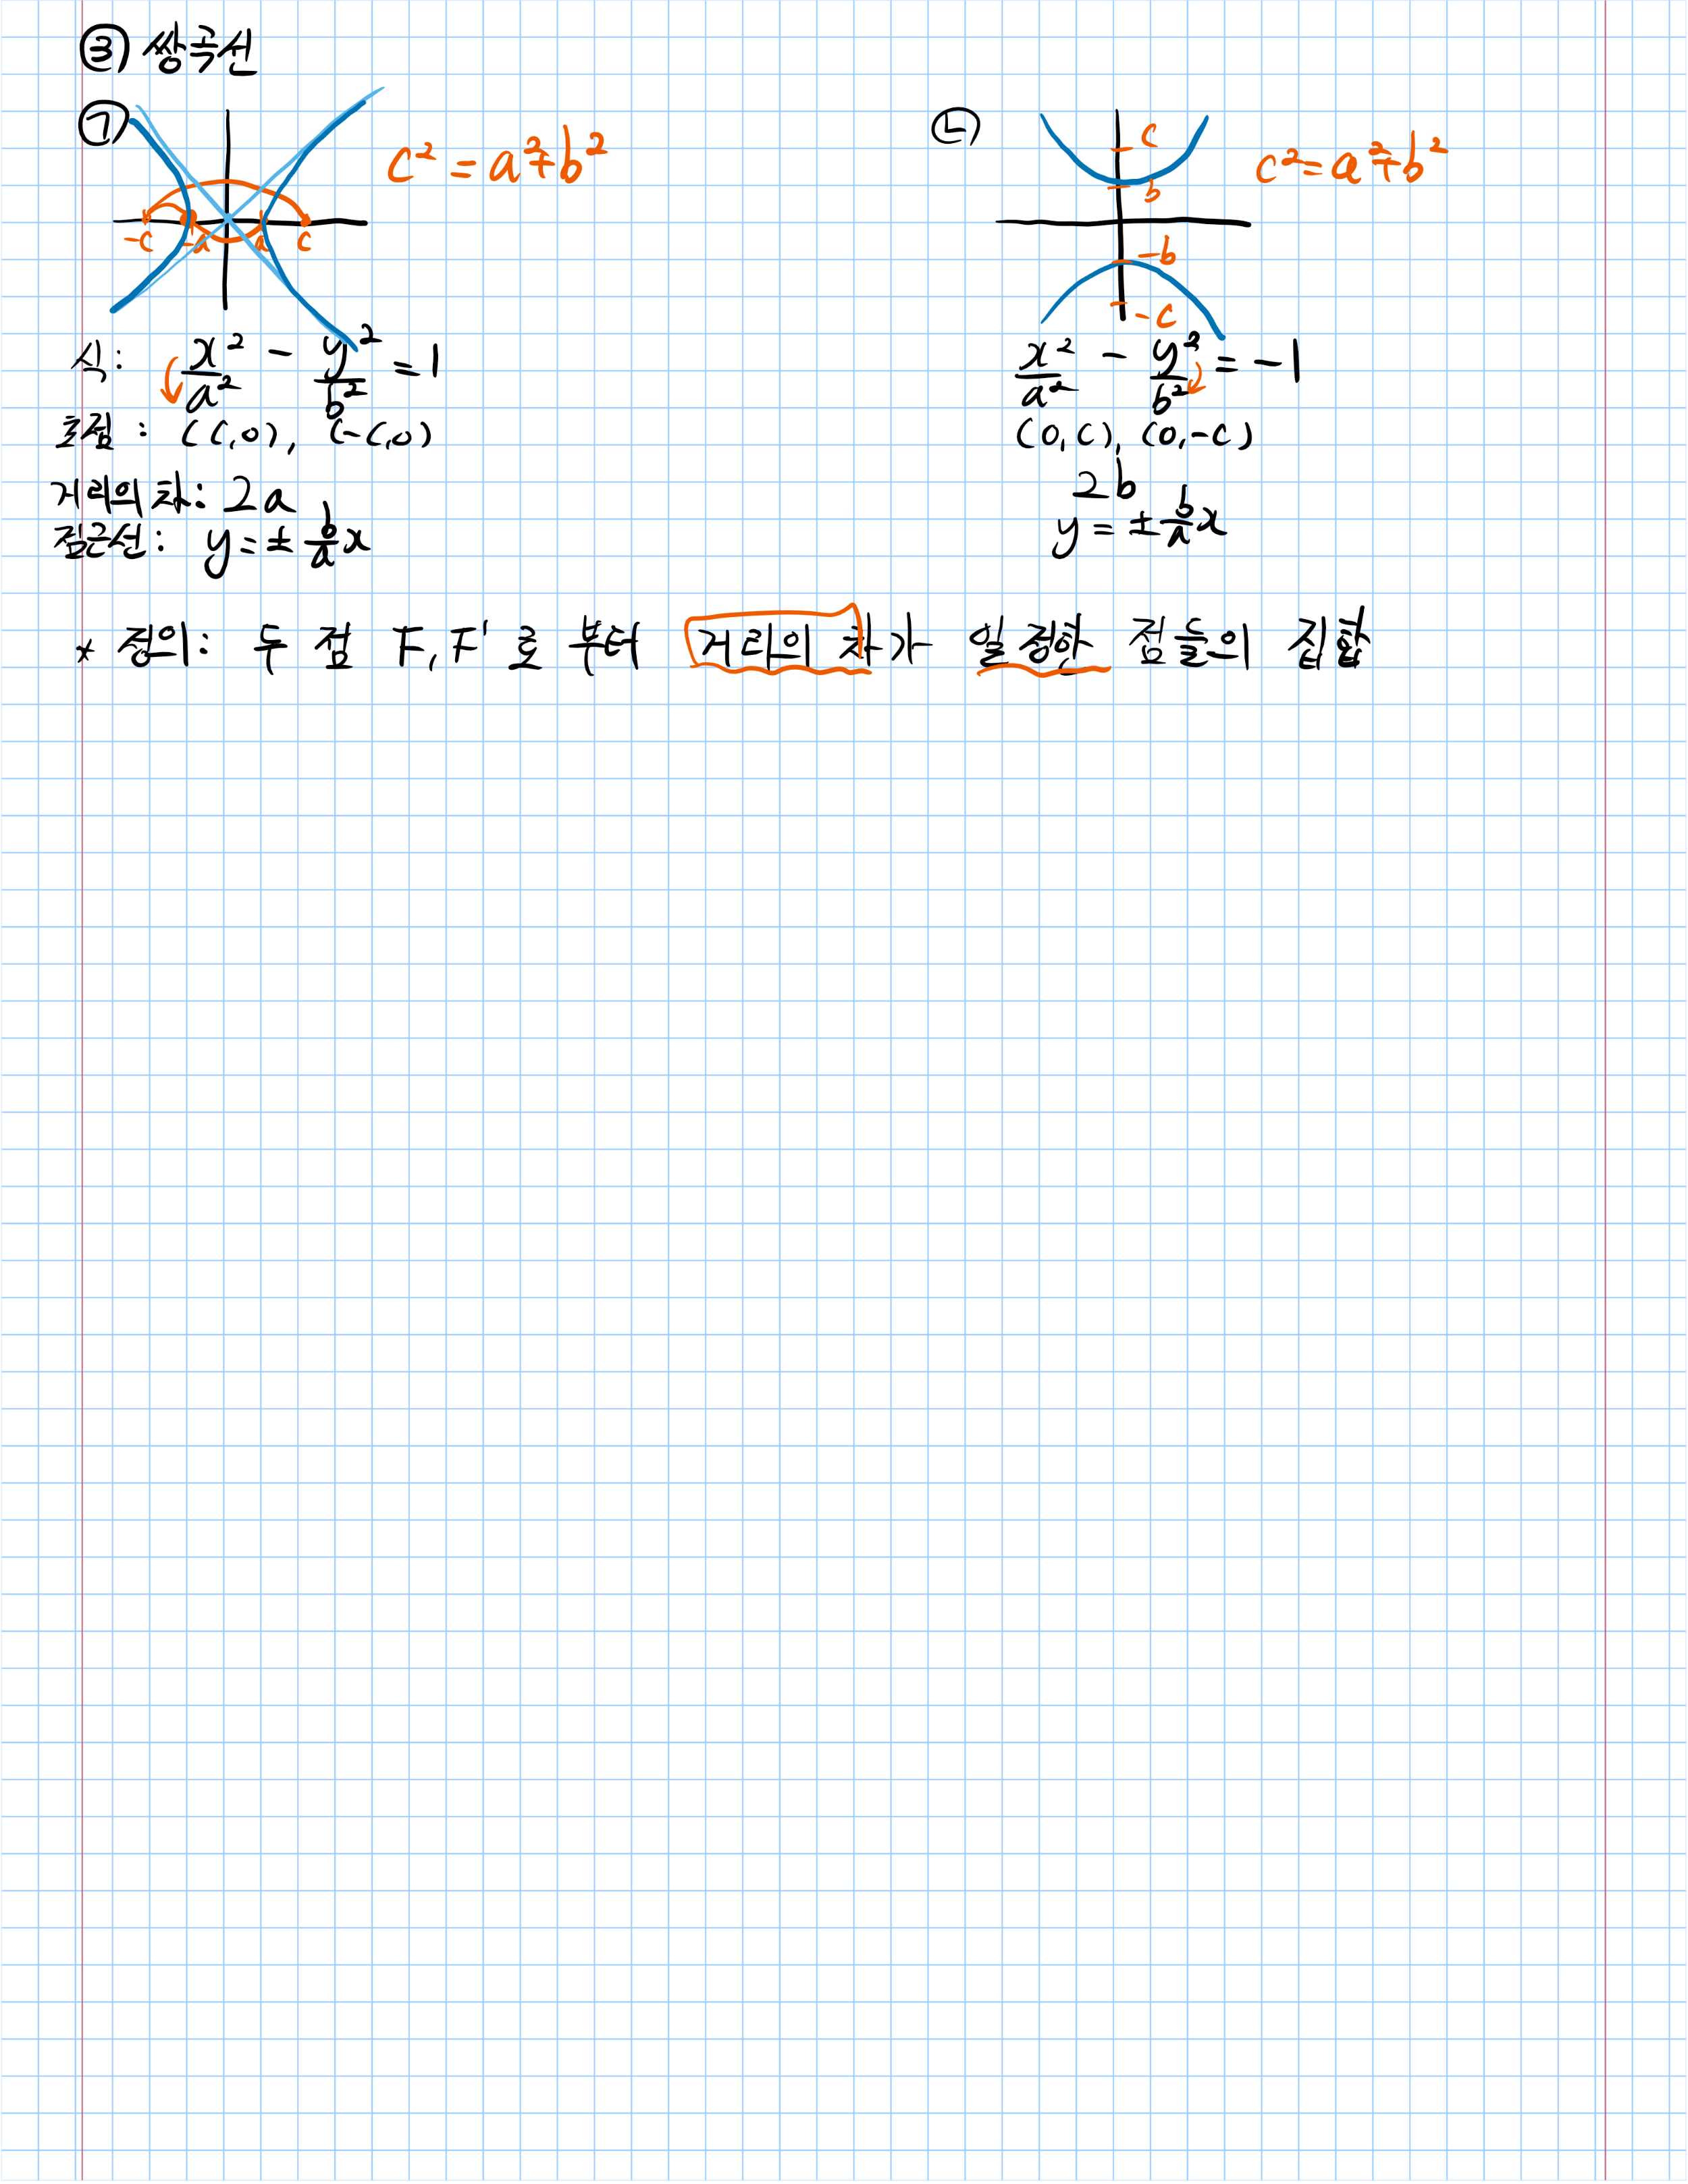 ③ 쌍곡선
㉠ c² = a²+b²
-c -a a c
식: x²/a² - y²/b² = 1
초점 : (c,0), (-c,0)
거리의 차: 2a
점근선: y=± b/a x
㉡ c²=a²+b²
c
b
-b
-c
x²/a² - y²/b² = -1
(0,c), (0,-c)
2b
y = ± b/a x
* 정의: 두 점 F, F' 로 부터 거리의 차가 일정한 점들의 집합